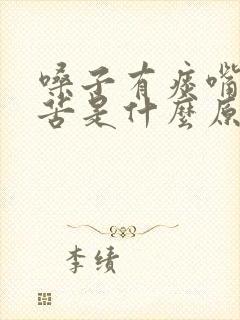 嗓子有痰嘴
苦是什麼原
李绩